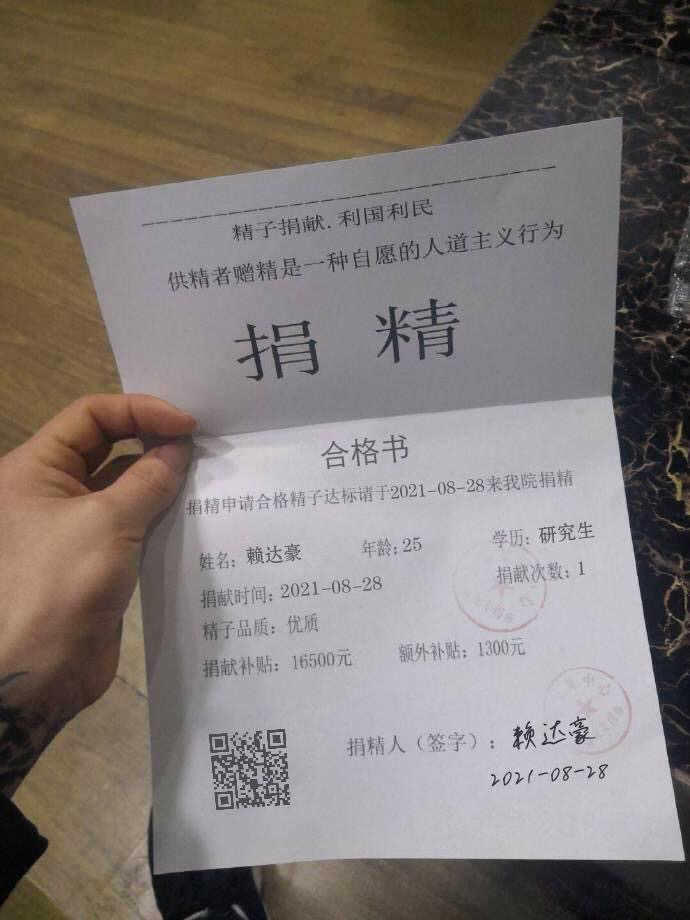 精子捐献.利国利民
供精者赠精是一种自愿的人道主义行为
捐 精
合格书
捐精申请合格精子达标请于2021-08-28来我院捐精
姓名: 赖达豪 年龄:25 学历: 研究生
捐献时间: 2021-08-28 捐献次数: 1
精子品质: 优质
捐献补贴: 16500元 额外补贴: 1300元
捐精人（签字）: 赖达豪
2021-08-28